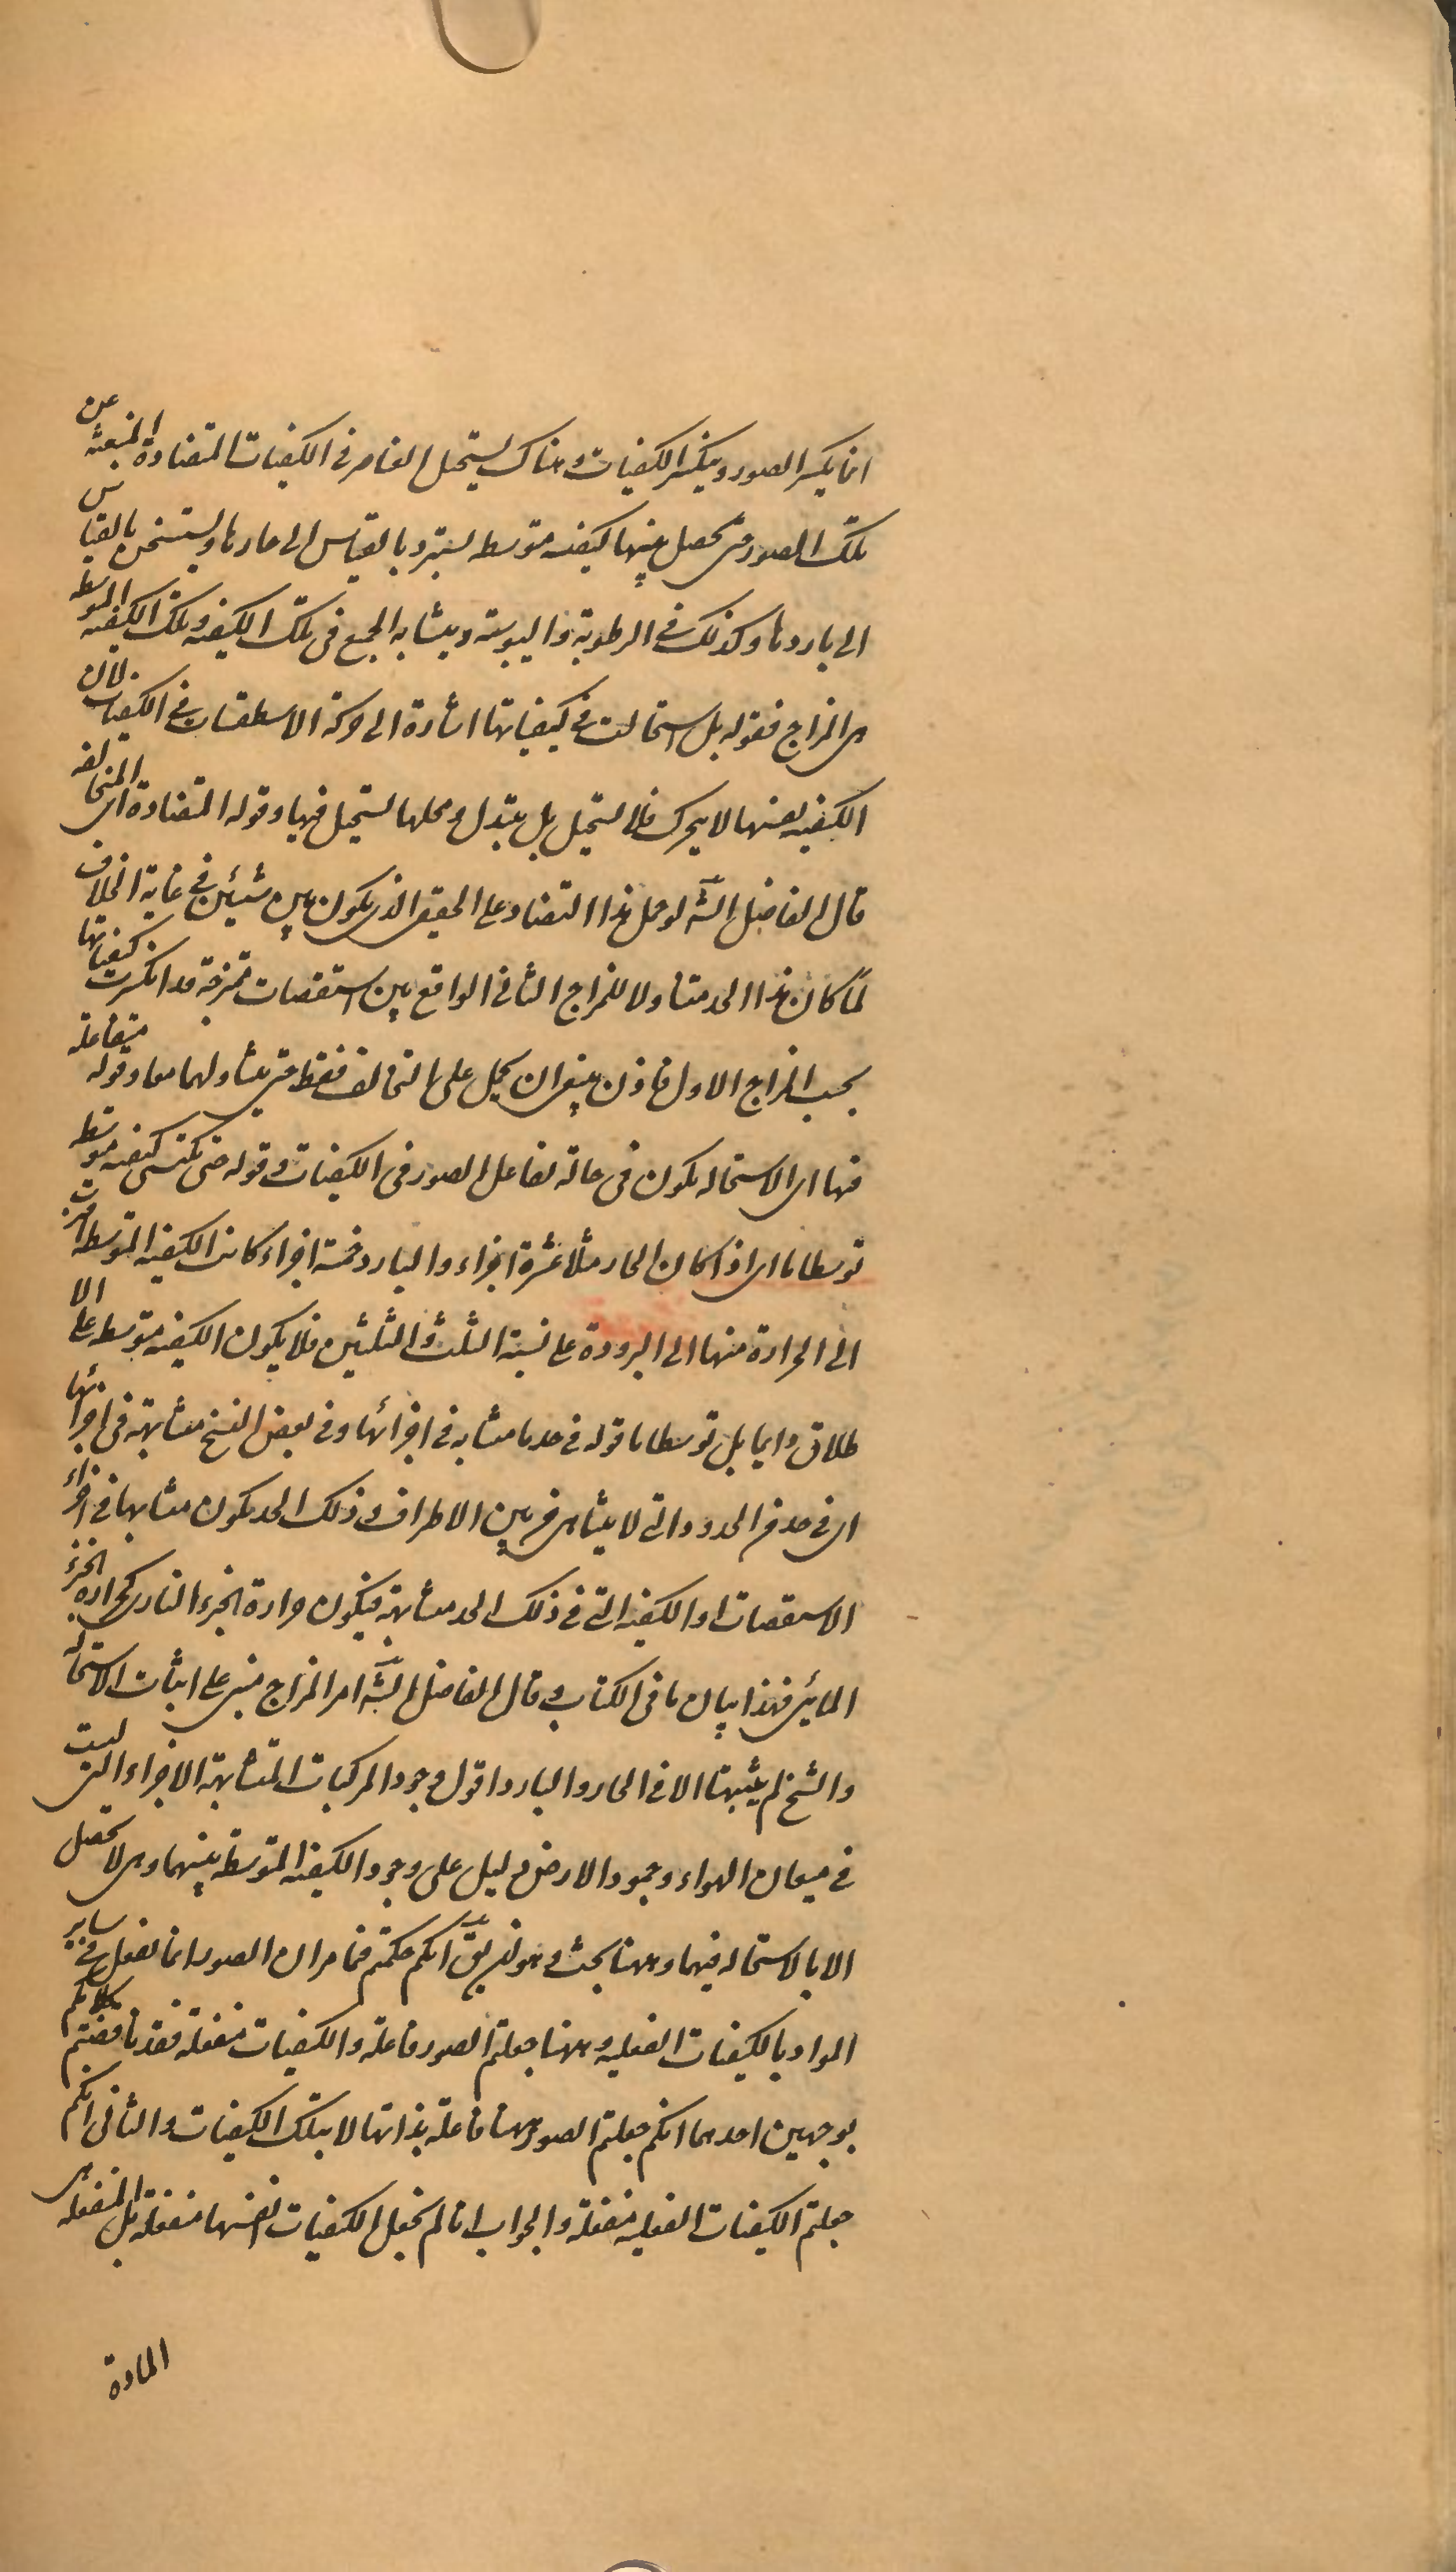 انما يكسر الصور وينكسر الكيفيات وهناك يستحيل العناصر فى الكيفيات المتضادة المنبعثه عن
تلك الصور حتى تحصل فيها كيفيه متوسطه يستبرد بالقياس الى حارها ويستسخن بالقياس
الى باردها وكذلك فى الرطوبة واليبوسته ويتشابه الجميع فى تلك الكيفيه وتلك الكيفيه المتوسطه
هى المزاج فقوله بل استحالت فى كيفياتها اشارة الى حركة الاسطقسات فى الكيفيات لان
الكيفيه نفسها لا يتحرك فلا تستحيل بل يتبدل ومحلها يستحيل فيها وقوله المتضادة اى المتخالفه
قال الفاضل الش لو حمل هذا التضاد على الحقيقى الذى يكون بين شيئين فى غاية الخلاف
لما كان هذا الحد متناولا للمزاج الثانى الواقع بين استقصات ممتزجة قد انكسرت كيفياتها
بحسب المزاج الاول فاذن ينبغى ان يحمل على التخالف فقط حتى يتناولهما معا وقوله متفاعلة
فيها اى الاستحاله يكون فى حالة تفاعل الصور فى الكيفيات وقوله حتى تكتسى كيفيه متوسطه
توسطا ما اى اذا كان الحار مثلا عشرة اجزاء والبارد خمسة اجزاء كانت الكيفيه المتوسطه اقرب
الى الحرارة منها الى البرودة على نسبة الثلث والثلثين فلا يكون الكيفيه متوسطه على الا
طلاق دايما بل توسطا ما قوله فى حد ما متشابه فى اجزائها وفى بعض النسخ متشابهة فى اجزائها
اى فى حد من الحدود التى لا يتناهى من بين الاطراف وذلك الحد يكون متشابها فى اجزاء
الاستقصات او الكيفيه التى فى ذلك الحد متشابهة فيكون حرارة الجزء النارى كحرارة الجزء
المائى فهذا بيان ما فى الكتاب وقال الفاضل الش امر المزاج مبنى على اثبات الاستحاله
والشيخ لم يثبتها الا فى الحار والبارد اقول وجود المركبات المتشابهة الاجزاء التى ليست
فى ميعان الهواء وجمود الارض دليل على وجود الكيفيه المتوسطة بينهما وهى لا تحصل
الا بالاستحاله فيهما وههنا بحث وهو ان يق انكم حكمتم فيما مر ان الصور انما تفعل فى ساير
المواد بالكيفيات الفعليه وههنا جعلتم الصور فاعلة والكيفيات منفعلة فقد ناقضتم كلامكم
بوجهين احدهما انكم جعلتم الصور ههنا فاعلة بذاتها لا بتلك الكيفيات والثانى انكم
جعلتم الكيفيات الفعليه منفعلة والجواب انا لم نجعل الكيفيات انفسها منفعلة بل المنفعله هى
المادة